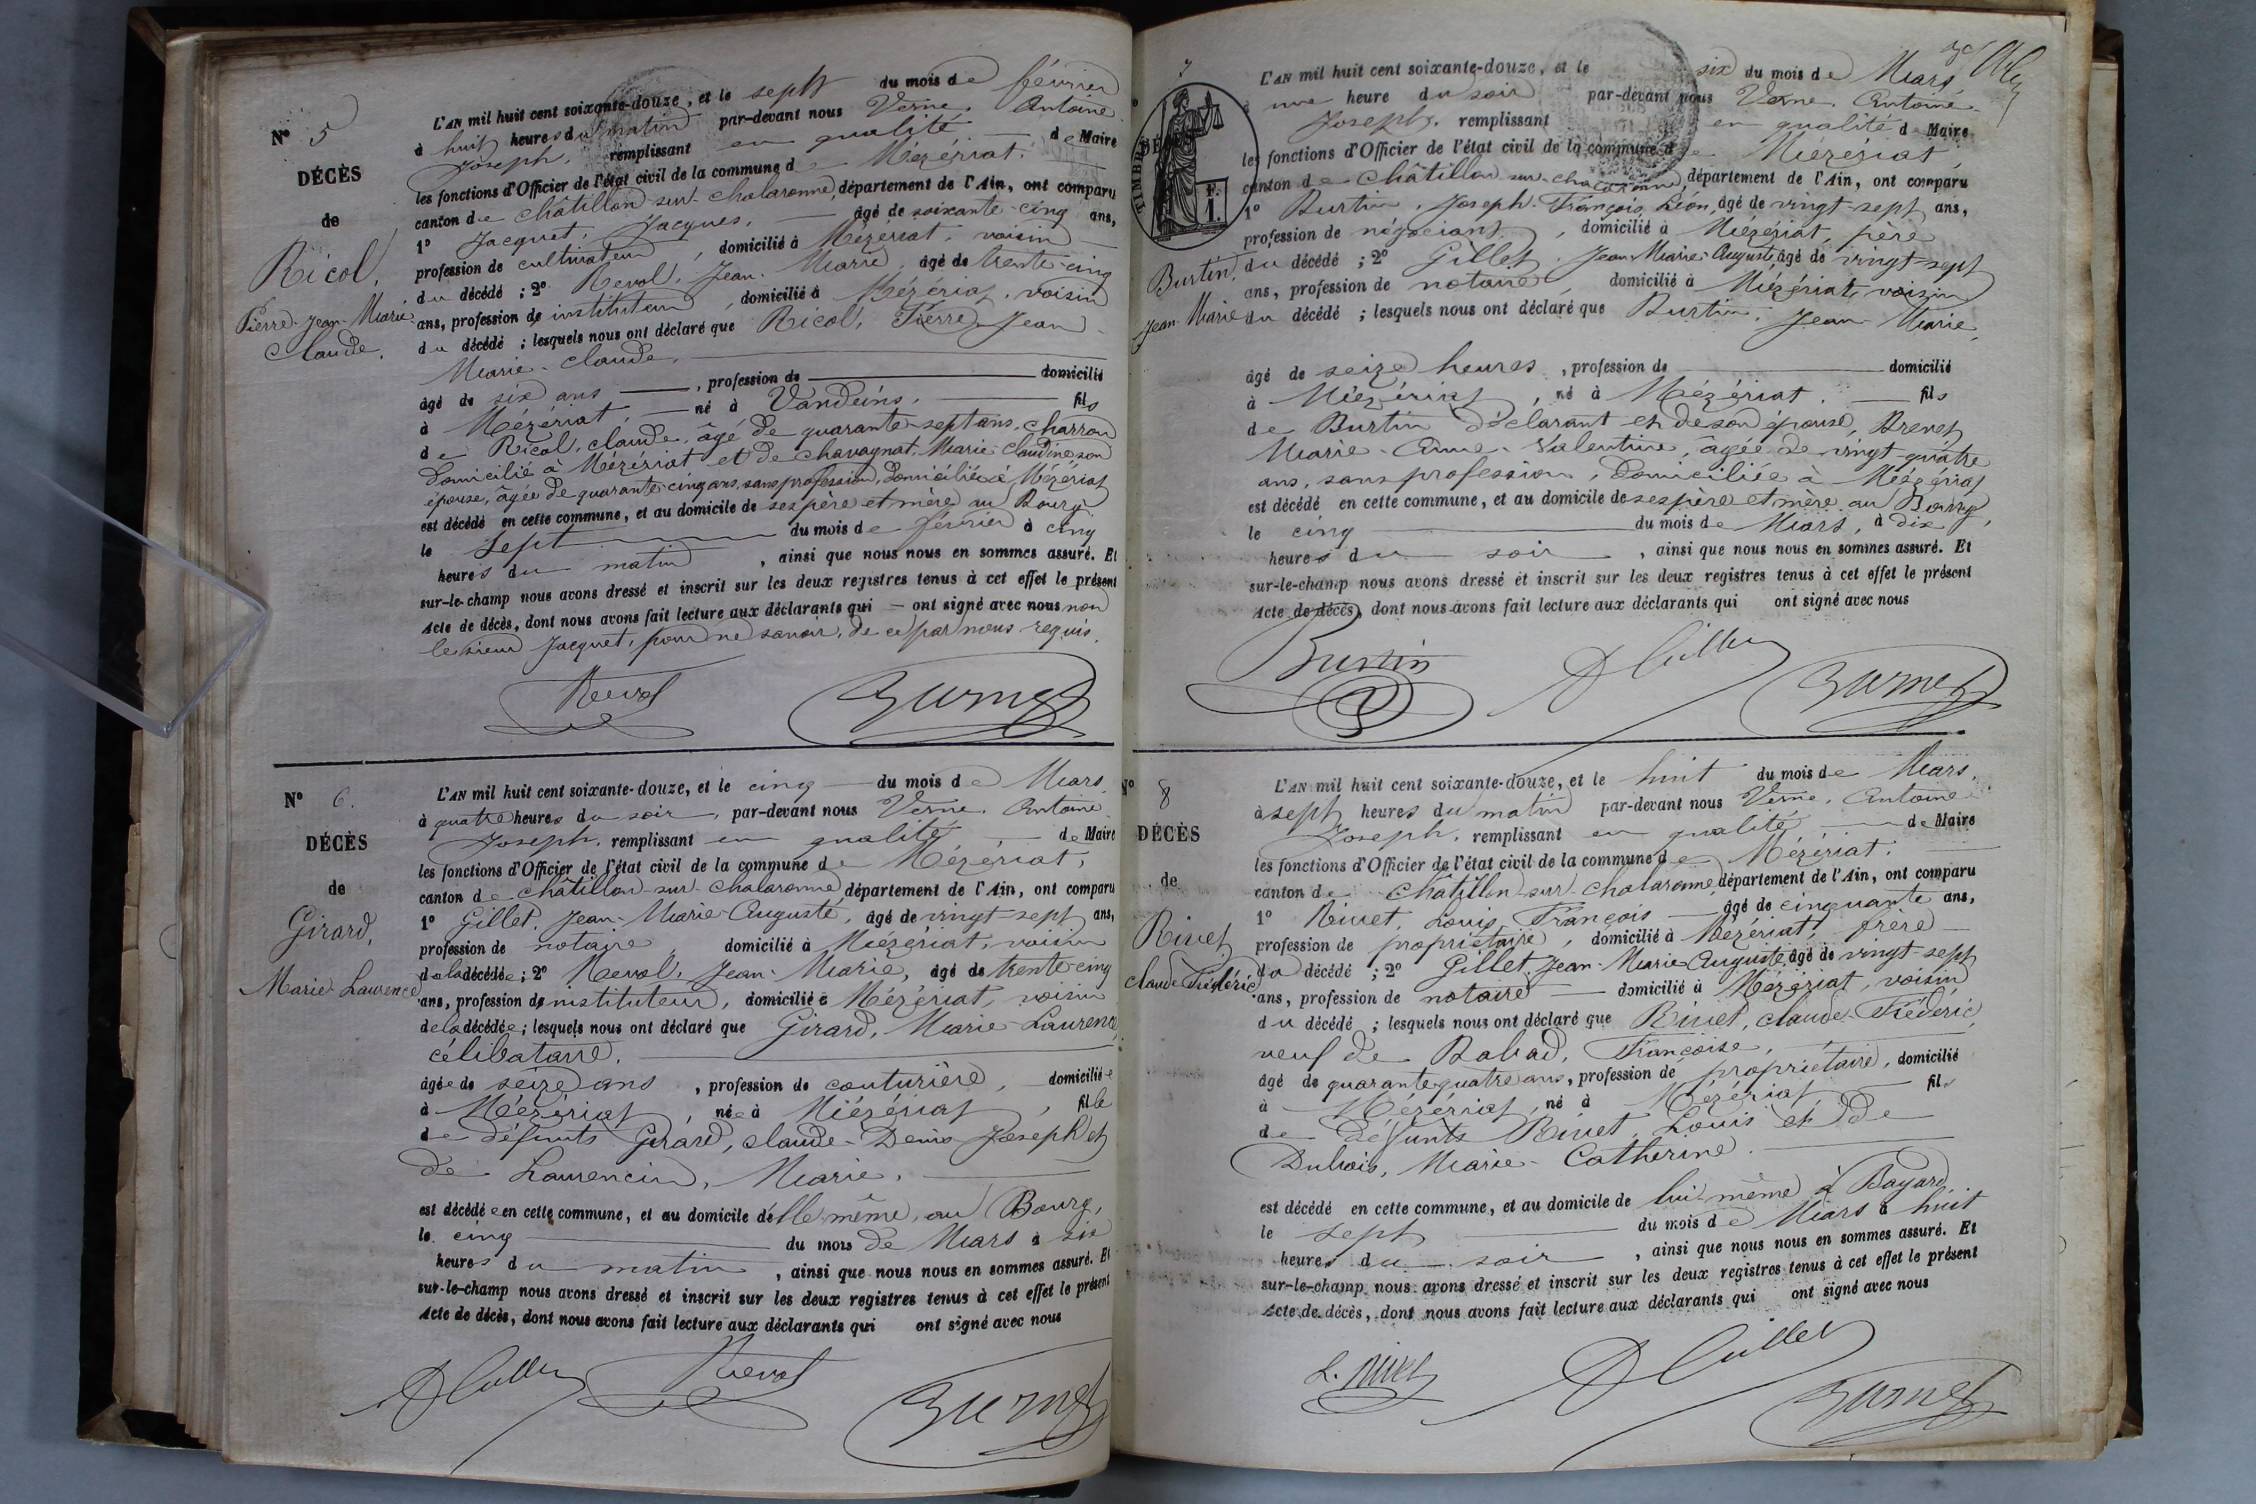 N° 5
DÉCÈS
de
Ricol,
Pierre-Jean-Marie
Claude.
L'AN mil huit cent soixante-douze, et le sept du mois de février
à huit heures du matin par-devant nous Verne, Antoine
Joseph, remplissant en qualité de Maire
les fonctions d'Officier de l'état civil de la commune de Mézériat,
canton de Châtillon sur Chalaronne, département de l'Ain, ont comparu
1° Jacquet, Jacques, âgé de soixante-cinq ans,
profession de cultivateur, domicilié à Mézériat, voisin
du décédé ; 2° Revol, Jean-Marie, âgé de trente-cinq
ans, profession de instituteur, domicilié à Mézériat, voisin
du décédé ; lesquels nous ont déclaré que Ricol, Pierre Jean
Marie-Claude,
âgé de six ans, profession de domicilié
à Mézériat, né à Vandeins, fils
de Ricol, Claude, âgé de quarante-sept ans, charron
domicilié à Mézériat et de Chavagnat, Marie-Claudine son
épouse, âgée de quarante-cinq ans, sans profession, domiciliée à Mézériat
est décédé en cette commune, et au domicile de ses père et mère au Bourg
le sept du mois de février à cinq
heures du matin, ainsi que nous nous en sommes assuré. Et
sur-le-champ nous avons dressé et inscrit sur les deux registres tenus à cet effet le présent
Acte de décès, dont nous avons fait lecture aux déclarants qui — ont signé avec nous non
le sieur Jacquet, pour ne savoir, de ce par nous requis.
Revol
N° 6.
DÉCÈS
de
Girard,
Marie-Laurence
L'AN mil huit cent soixante-douze, et le cinq du mois de Mars
à quatre heures du soir, par-devant nous Verne, Antoine
Joseph, remplissant en qualité de Maire
les fonctions d'Officier de l'état civil de la commune de Mézériat,
canton de Châtillon-sur-Chalaronne, département de l'Ain, ont comparu
1° Gillet, Jean-Marie-Auguste, âgé de vingt-sept ans,
profession de notaire, domicilié à Mézériat, voisin
de la décédée ; 2° Revol, Jean-Marie, âgé de trente-cinq
ans, profession de instituteur, domicilié à Mézériat, voisin
de la décédée ; lesquels nous ont déclaré que Girard, Marie-Laurence,
célibataire.
âgée de seize ans, profession de couturière, domiciliée
à Mézériat, née à Mézériat, fille
de défunts Girard, Claude-Denis Joseph et
de Laurencin, Marie.
est décédée en cette commune, et au domicile d'elle même, au Bourg,
le cinq du mois de Mars à six
heures du matin, ainsi que nous nous en sommes assuré. Et
sur-le-champ nous avons dressé et inscrit sur les deux registres tenus à cet effet le présent
Acte de décès, dont nous avons fait lecture aux déclarants qui ont signé avec nous
A Gillet Revol
7
TIMBRE
F.
1.
Burtin,
Jean-Marie
L'AN mil huit cent soixante-douze, et le six du mois de Mars
à une heure du soir par-devant nous Verne, Antoine
Joseph, remplissant en qualité de Maire
les fonctions d'Officier de l'état civil de la commune de Mézériat,
canton de Châtillon sur Chalaronne, département de l'Ain, ont comparu
1° Burtin, Joseph-François Léon, âgé de vingt-sept ans,
profession de négociant, domicilié à Mézériat, père
du décédé ; 2° Gillet, Jean-Marie-Auguste, âgé de vingt-sept
ans, profession de notaire, domicilié à Mézériat, voisin
du décédé ; lesquels nous ont déclaré que Burtin, Jean-Marie,
âgé de seize heures, profession de domicilié
à Mézériat, né à Mézériat. fils
de Burtin déclarant et de son épouse, Brevet
Marie-Anne-Valentine, âgée de vingt-quatre
ans, sans profession, domiciliée à Mézériat
est décédé en cette commune, et au domicile de ses père et mère au Bourg,
le cinq du mois de Mars, à dix
heures du soir, ainsi que nous nous en sommes assuré. Et
sur-le-champ nous avons dressé et inscrit sur les deux registres tenus à cet effet le présent
Acte de décès, dont nous avons fait lecture aux déclarants qui ont signé avec nous
Burtin A Gillet
N° 8
DÉCÈS
de
Rivet,
Claude-Frédéric
L'AN mil huit cent soixante-douze, et le huit du mois de Mars,
à sept heures du matin par-devant nous Verne, Antoine
Joseph, remplissant en qualité de Maire
les fonctions d'Officier de l'état civil de la commune de Mézériat,
canton de Châtillon sur Chalaronne, département de l'Ain, ont comparu
1° Rivet, Louis François âgé de cinquante ans,
profession de propriétaire, domicilié à Mézériat, frère
du décédé ; 2° Gillet, Jean-Marie Auguste, âgé de vingt-sept
ans, profession de notaire domicilié à Mézériat, voisin
du décédé ; lesquels nous ont déclaré que Rivet, Claude-Frédéric,
veuf de Rabad, Françoise,
âgé de quarante-quatre ans, profession de propriétaire, domicilié
à Mézériat, né à Mézériat, fils
de défunts Rivet, Louis et de
Dubois, Marie-Catherine.
est décédé en cette commune, et au domicile de lui-même à Bayard
le sept du mois de Mars à huit
heures du soir, ainsi que nous nous en sommes assuré. Et
sur-le-champ nous avons dressé et inscrit sur les deux registres tenus à cet effet le présent
Acte de décès, dont nous avons fait lecture aux déclarants qui ont signé avec nous
L. Rivet A Gillet